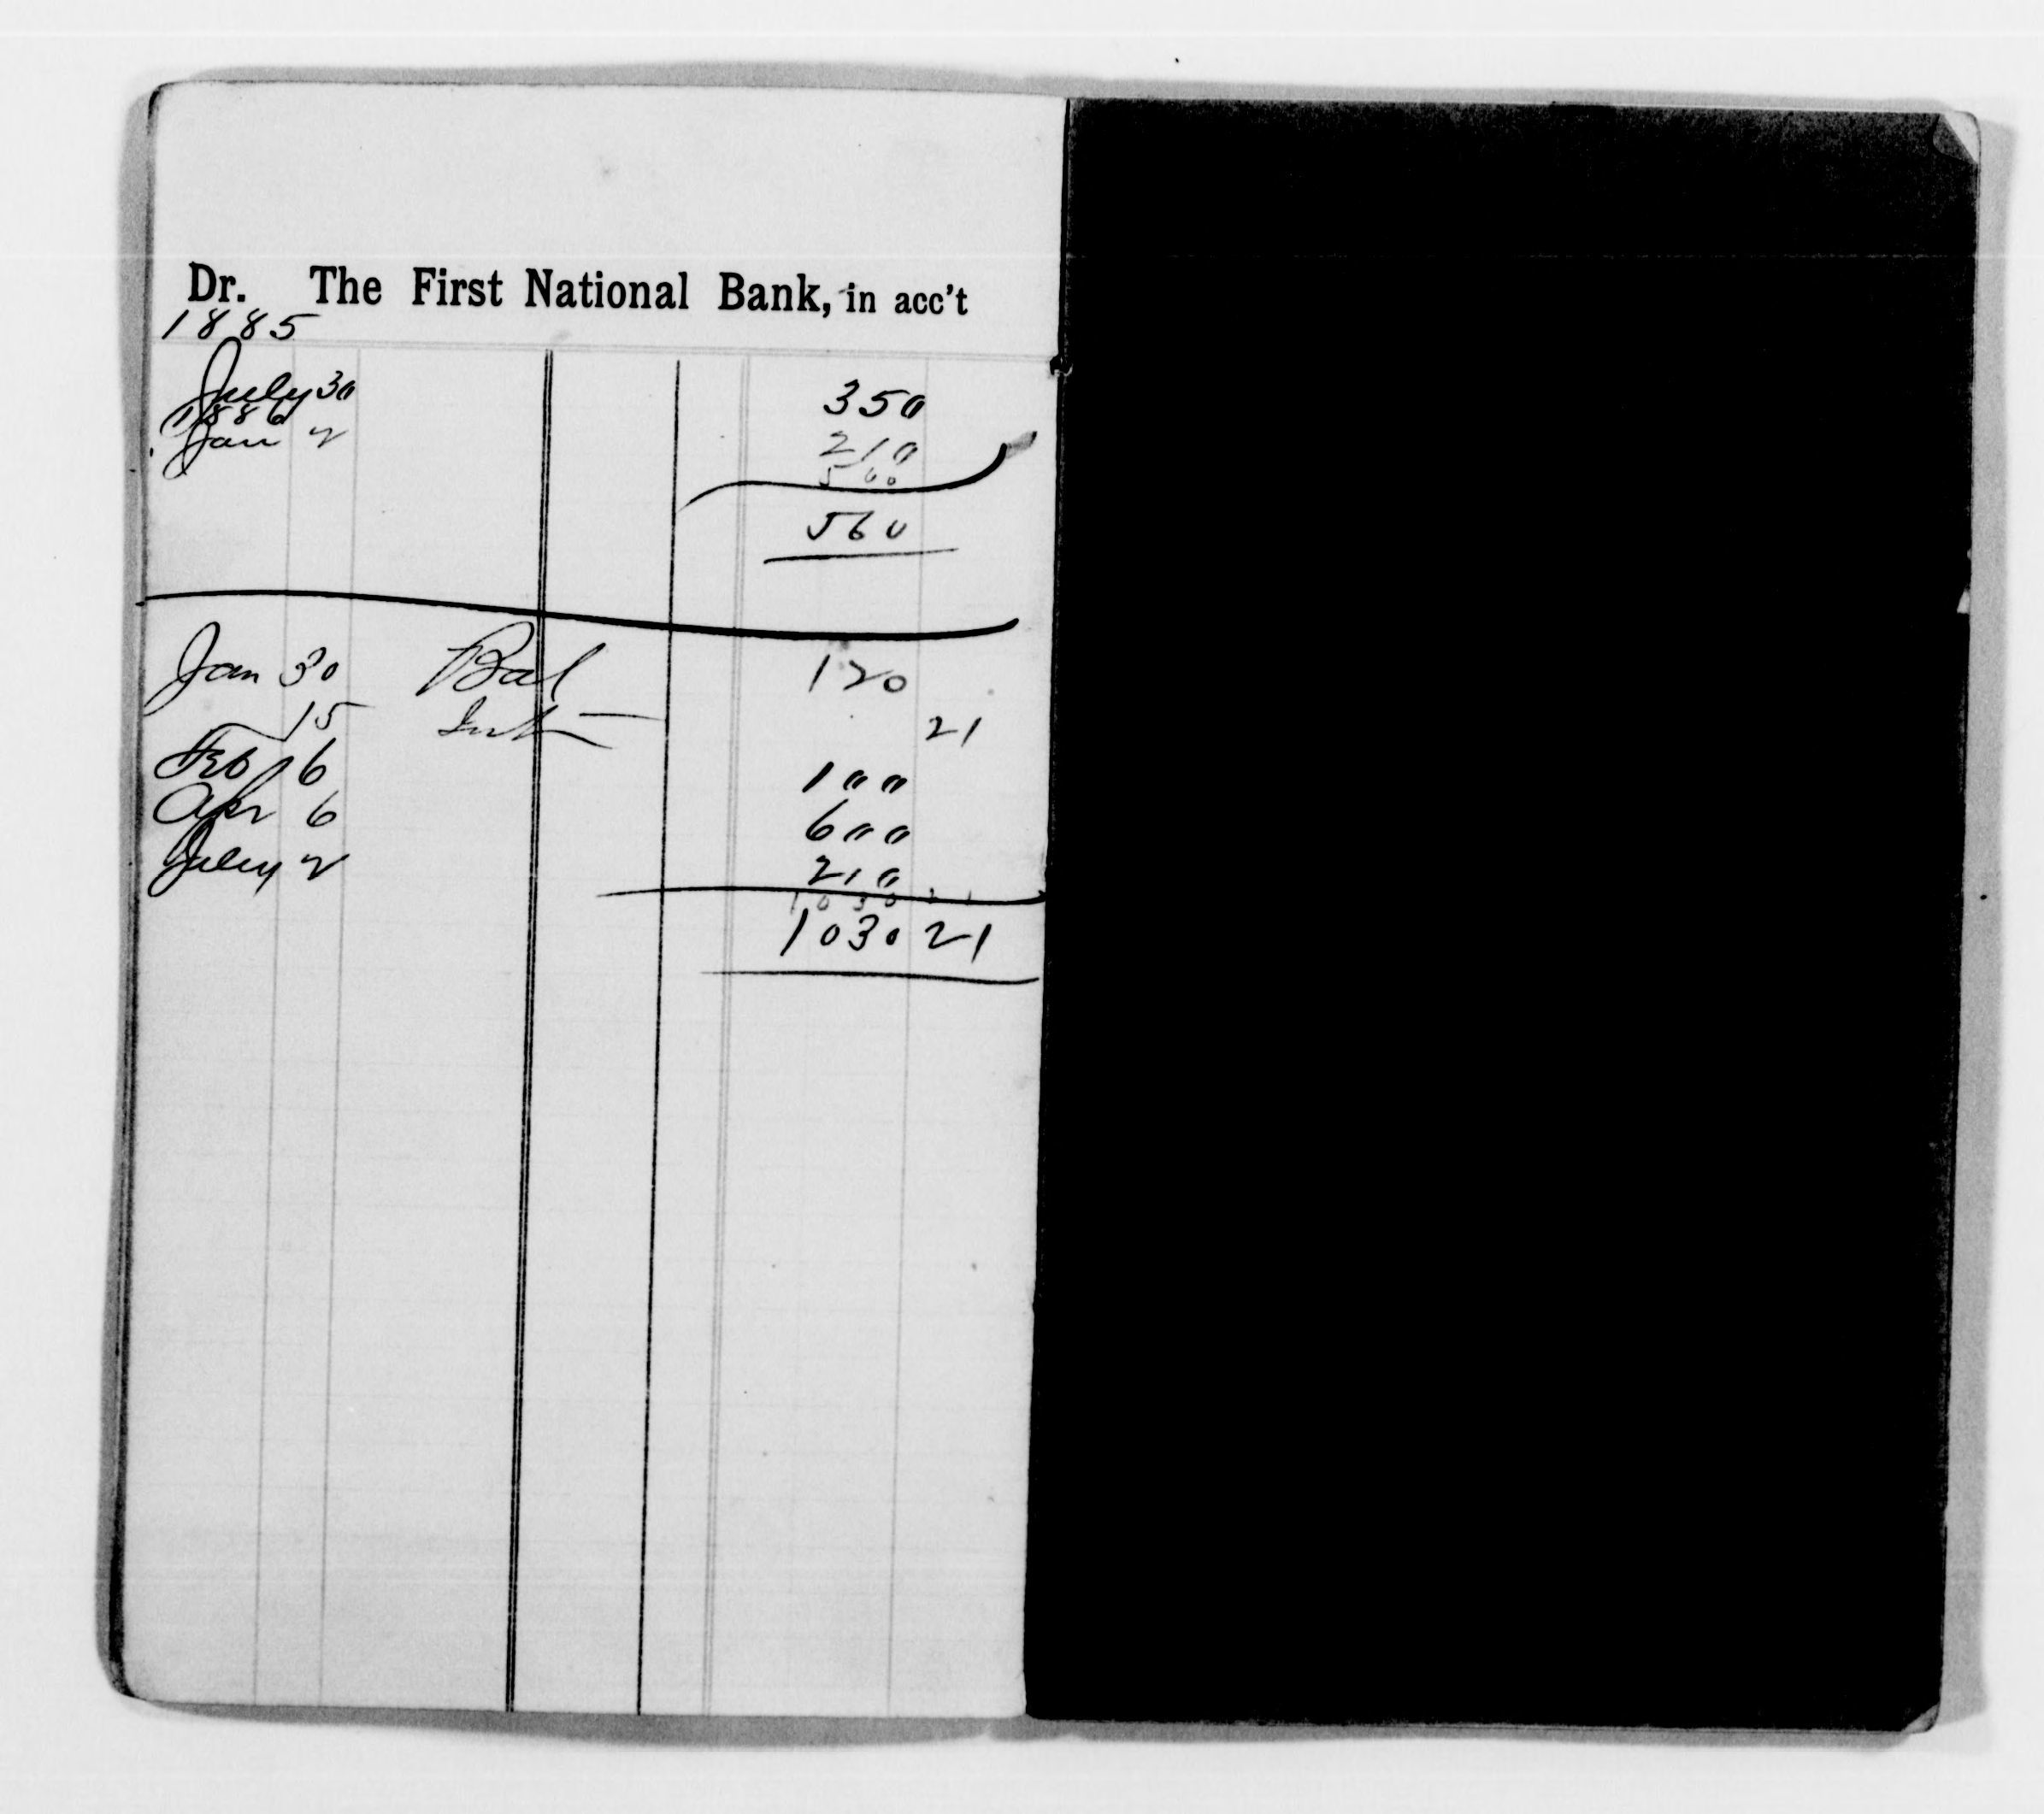 Dr. The First National Bank, in acc't
1885
July 30 350
1886
Jan 2 210
560
560
Jan 30 Bal 120
15 Int 21
Feb 6 100
Apr 6 600
July 2 210
1030 21
1030 21